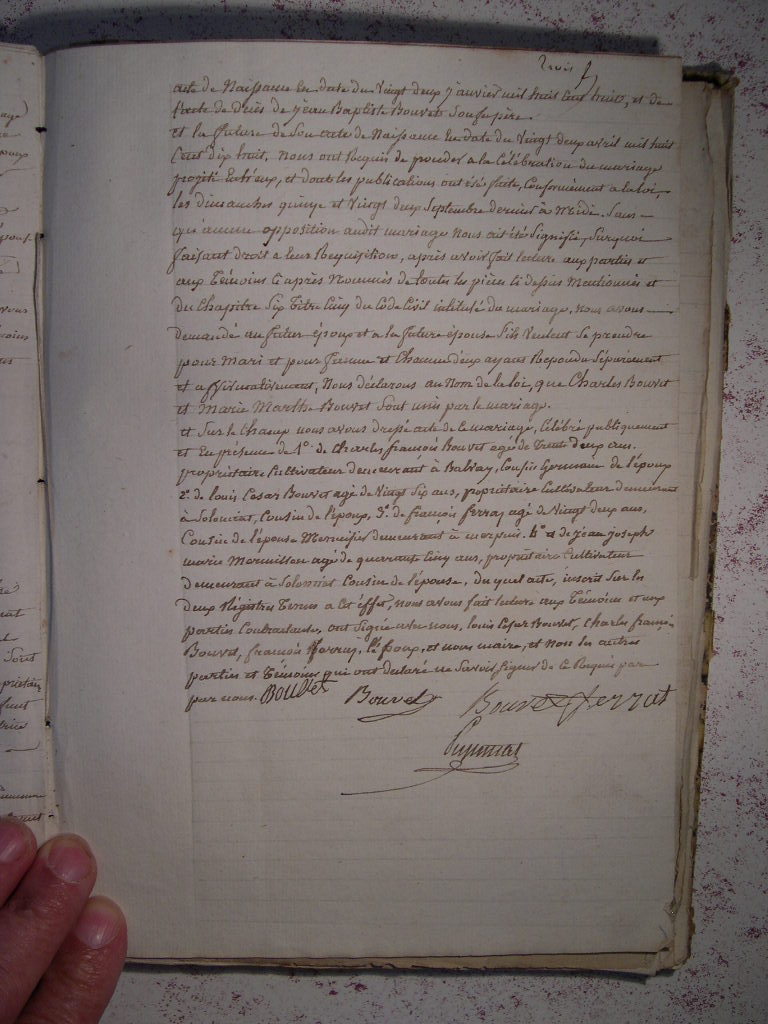 trois
acte de Naissance En date du Vingt deux janvier mil huit Cent huit, et de
l'acte de Décès de jean Baptiste Bouvet Son feu père.
et la future de Son acte de Naissance En date du Vingt deux avril mil huit
Cent dix huit, Nous ont Requis de procéder a la Célébration du mariage
projetté Entr'eux, et dont les publications ont été faite, Conformement a la loi,
les dimanches quinze et Vingt deux Septembre dernier à Midi. Sans
qu'aucune opposition audit mariage nous ait été Signifié, Surquoi
faisant droit a leur Requisition, après avoir fait lecture aux parties et
aux Témoins Ci après Nommés de toutes les pièces Ci dessus Mentionnés et
du Chapitre Six Titre Cinq du Code Civil intitulé du mariage, nous avons
demandé au futur époux et a la future épouse S'ils Veulent Se prendre
pour Mari et pour femme et Chacun d'eux ayant Repondu Séparément
et affirmativement, Nous déclarons au Nom de la loi, que Charles Bouvet
et Marie Marthe Bouvet Sont unis par le mariage.
et Sur le Champ nous avons dressé acte de Ce mariage, Célébré publiquement
et En présence de 1°. de Charles françois Bouvet agé de Trente deux ans.
proprietaire Cultivateur demeurant à , Cousin Germain de l'époux
2°. de louis César Bouvet agé de Vingt Six ans, propriétaire Cultivateur demeurant
à , Cousin de l'époux, 3°. de françois ferraz agé de Vingt deux ans,
Cousin de l'épouse demeurant à . 4° et de jean joseph
marie agé de quarante Cinq ans, propriétaire Cultivateur
demeurant à Cousin de l'épouse, du quel acte, inscrit Sur les
deux Registres Tenus a Cet éffet, nous avons fait lecture aux Témoins et aux
parties Contractantes, ont Signé avec nous, louis César Bouvet, Charles françois
Bouvet, françois ferraz, l'époux, et nous maire, et Non les autres
parties et Témoins qui ont declaré ne Savoir Signer de Ce Requis par
par nous. Bouvet Bouvet Bouvet ferrat